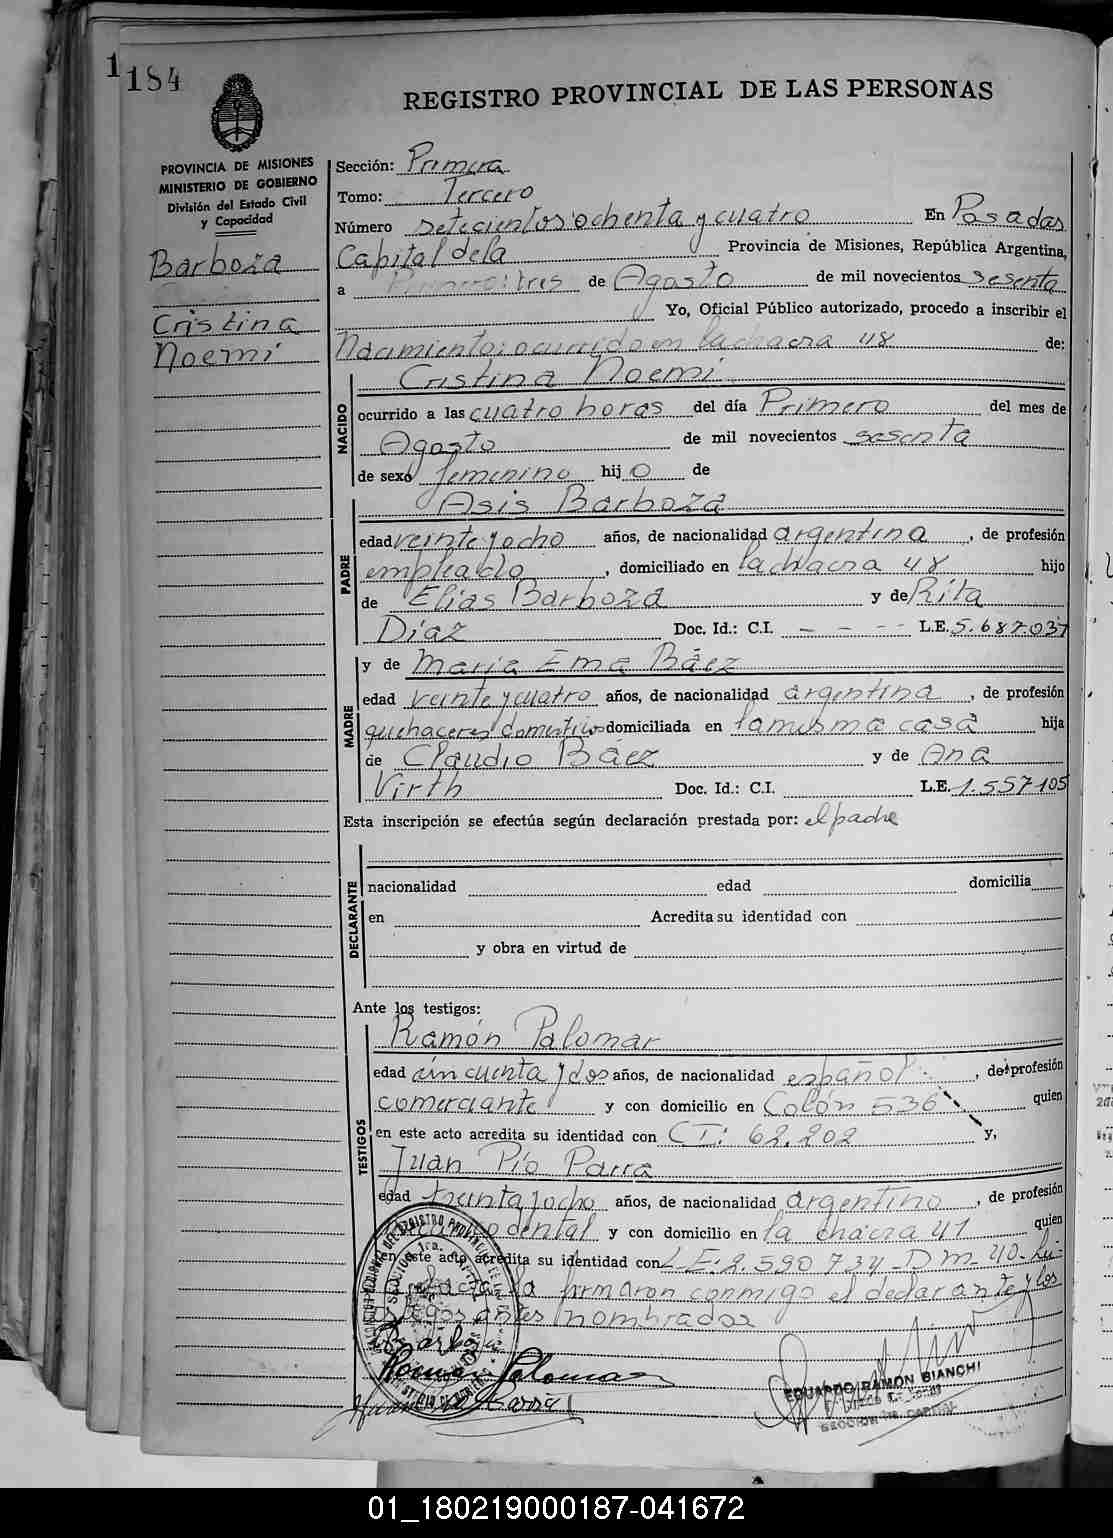 1
184
REGISTRO PROVINCIAL DE LAS PERSONAS
PROVINCIA DE MISIONES
MINISTERIO DE GOBIERNO
División del Estado Civil
y Capacidad
Barboza
Cristina
Noemi
Sección: Primera
Tomo: Tercero
Número setecientos ochenta y cuatro En Posadas
Capital de la Provincia de Misiones, República Argentina,
a tres de Agosto de mil novecientos sesenta
Yo, Oficial Público autorizado, procedo a inscribir el
Nacimiento: ocurrido en la chacra 48 de:
NACIDO
Cristina Noemi
ocurrido a las cuatro horas del día Primero del mes de
Agosto de mil novecientos sesenta
de sexo femenino hij o de
PADRE
Asis Barboza
edad veinte y ocho años, de nacionalidad argentina, de profesión
empleado, domiciliado en la chacra 48 hijo
de Elias Barboza y de Rita
Díaz Doc. Id.: C.I. - - - - L.E. 5.687.037
MADRE
y de Maria Ema Báez
edad veinte y cuatro años, de nacionalidad argentina, de profesión
quehaceres domesticos domiciliada en la misma casa hija
de Claudio Báez y de Ana
Virth Doc. Id.: C.I. L.E. 1.557.105
Esta inscripción se efectúa según declaración prestada por: el padre
DECLARANTE
nacionalidad edad domicilia
en Acredita su identidad con
y obra en virtud de
Ante los testigos:
TESTIGOS
Ramón Palomar
edad cincuenta y dos años, de nacionalidad español, de profesión
comerciante y con domicilio en Colón 536 quien
en este acto acredita su identidad con CI: 62.202 y,
Juan Pío Parra
edad treinta y ocho años, de nacionalidad argentino, de profesión
dental y con domicilio en la chacra 41 quien
en este acto acredita su identidad con L.E: 2.590.734 D.M. 40. Lei-
da el acta la firmaron conmigo el declarante y los
testigos antes nombrados
Barboza
Ramón Palomar
Juan P. Parra
EDUARDO RAMON BIANCHI
SECCION 1ra. CAPITAL
01_180219000187-041672